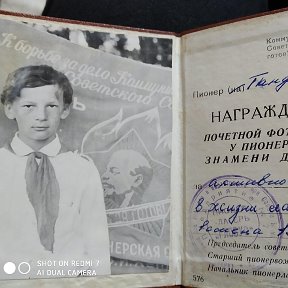 К борьбе за дело Коммуни
Советского С
ВСЕГДА ГОТОВ
НЕРСКАЯ
Комму
Советс
готов
Пионер (ка)
НАГРАЖД
ПОЧЕТНОЙ ФОТ
У ПИОНЕР
ЗНАМЕНИ Д
за активно
в жизни ла
ЛАГЕРЬ
Председатель совет
Старший пионервож
Начальник пионерла
576
SHOT ON REDMI 7
AI DUAL CAMERA